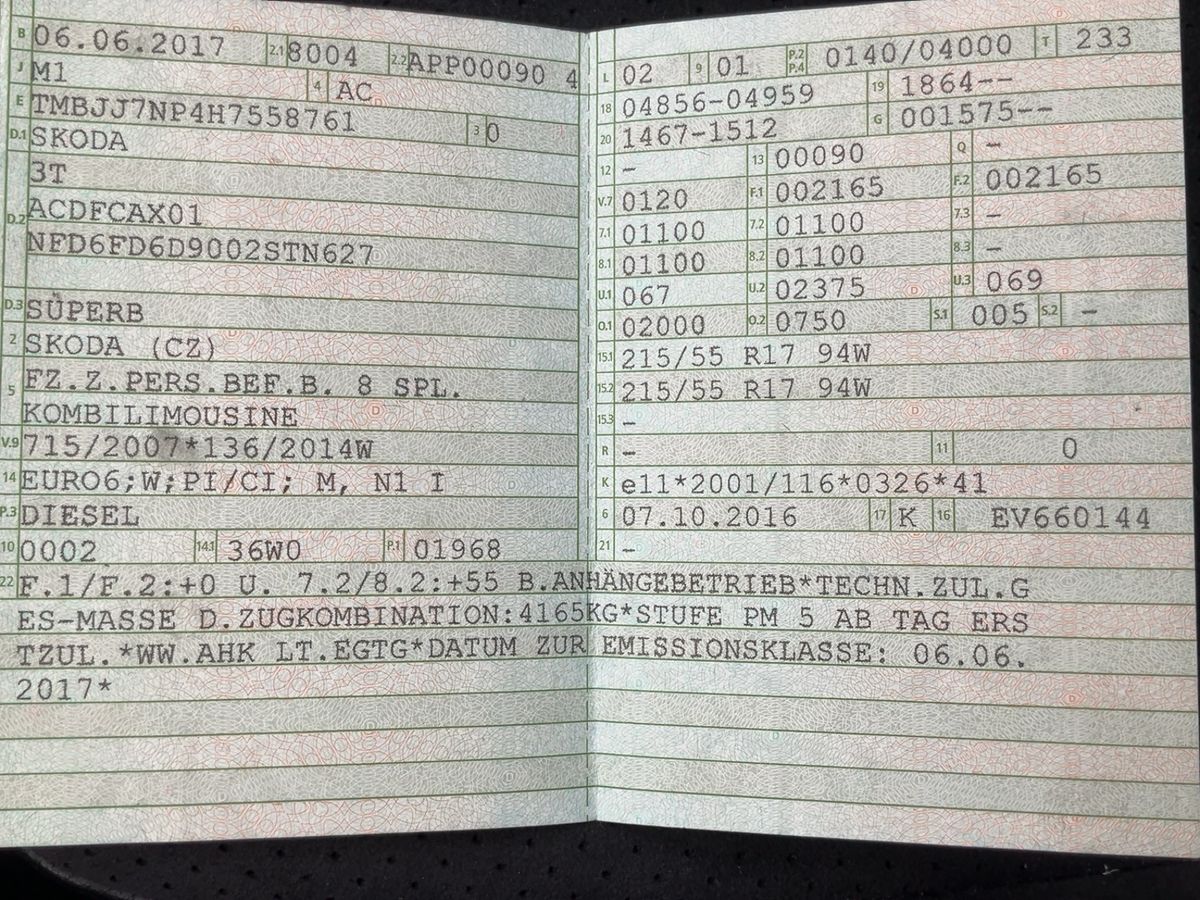 B 06.06.2017 2.1 8004 2.2 APP00090 4
J M1 4 AC
E TMBJJ7NP4H7558761 3 0
D.1 SKODA
3T
D.2 ACDFCAX01
NFD6FD6D9002STN627
D.3 SUPERB
2 SKODA (CZ)
5 FZ.Z.PERS.BEF.B. 8 SPL.
KOMBILIMOUSINE
V.9 715/2007*136/2014W
14 EURO6;W;PI/CI; M, N1 I
P.3 DIESEL
10 0002 14.1 36W0 P.1 01968
L 02 9 01 P.2 P.4 0140/04000 T 233
18 04856-04959 19 1864--
20 1467-1512 G 001575--
12 - 13 00090 Q -
V.7 0120 F.1 002165 F.2 002165
7.1 01100 7.2 01100 7.3 -
8.1 01100 8.2 01100 8.3 -
U.1 067 U.2 02375 U.3 069
O.1 02000 O.2 0750 S.1 005 S.2 -
15.1 215/55 R17 94W
15.2 215/55 R17 94W
15.3 -
R - 11 0
K e11*2001/116*0326*41
6 07.10.2016 17 K 16 EV660144
21 -
22 F.1/F.2:+0 U. 7.2/8.2:+55 B.ANHÄNGEBETRIEB*TECHN.ZUL.G
ES-MASSE D.ZUGKOMBINATION:4165KG*STUFE PM 5 AB TAG ERS
TZUL.*WW.AHK LT.EGTG*DATUM ZUR EMISSIONSKLASSE: 06.06.
2017*